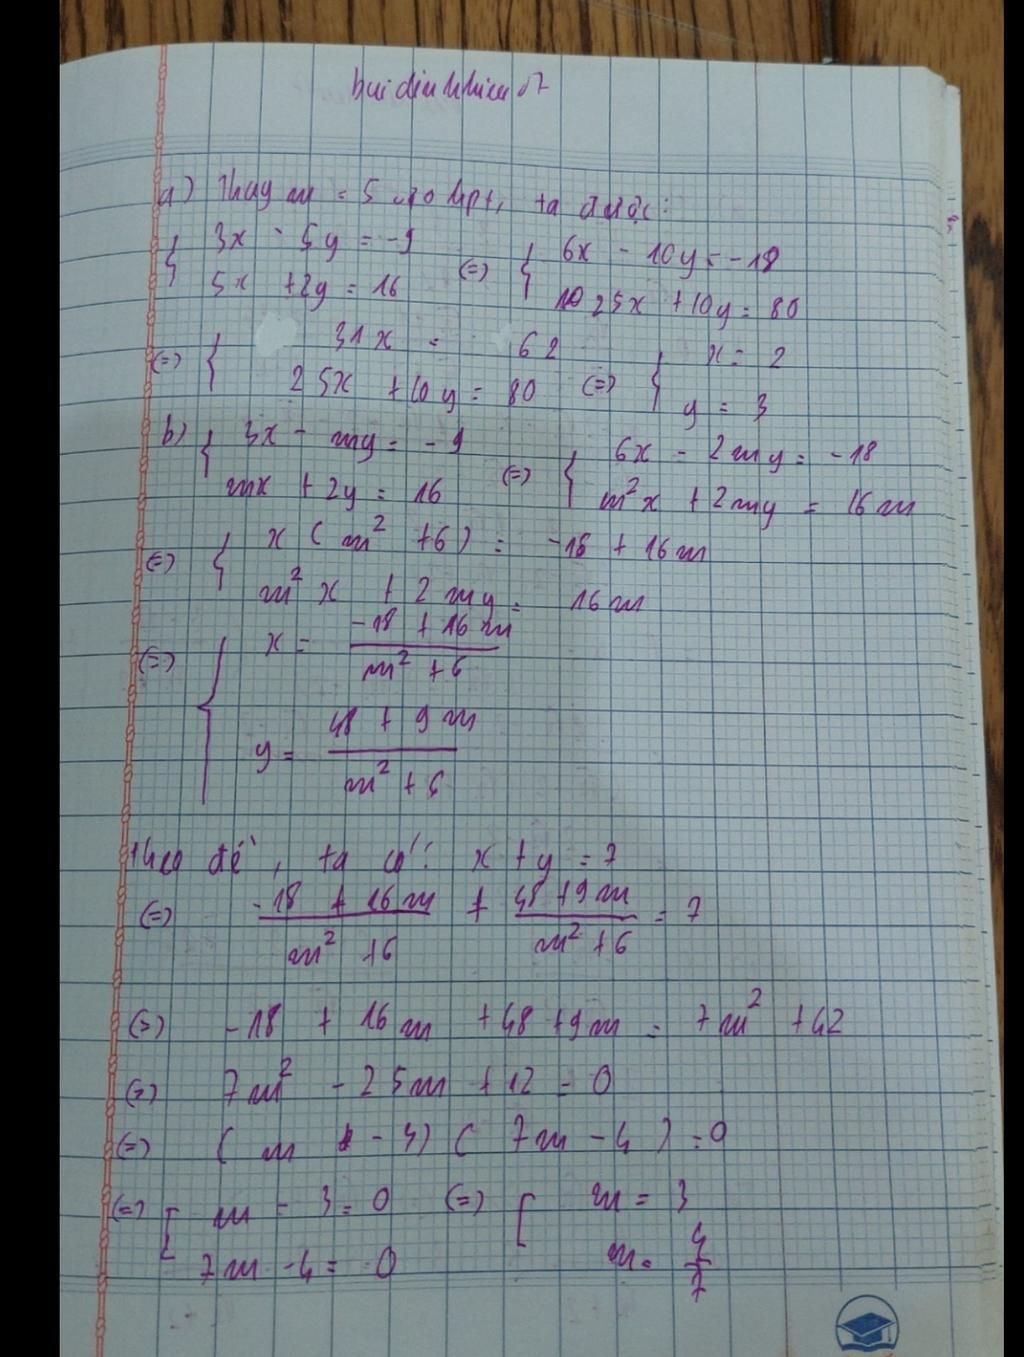 a) Thay m = 5 vào hpt, ta được:
{ 3x - 5y = -9 (=) { 6x - 10y = -18
5x + 2y = 16 25x + 10y = 80
(=) { 31x = 62 (=) { x = 2
25x + 10y = 80 y = 3
b) { 3x - my = -9 (=) { 6x - 2my = -18
mx + 2y = 16 m²x + 2my = 16m
(=) { x (m² + 6) = -18 + 16m
m²x + 2my = 16m
(=) { x = (-18 + 16m)/(m² + 6)
y = (48 + 9m)/(m² + 6)
Theo đề, ta có: x + y = 7
(=) (-18 + 16m)/(m² + 6) + (48 + 9m)/(m² + 6) = 7
(=) -18 + 16m + 48 + 9m = 7m² + 42
(=) 7m² - 25m + 12 = 0
(=) (m - 3) (7m - 4) = 0
(=) [ m - 3 = 0 (=) [ m = 3
7m - 4 = 0 m = 4/7